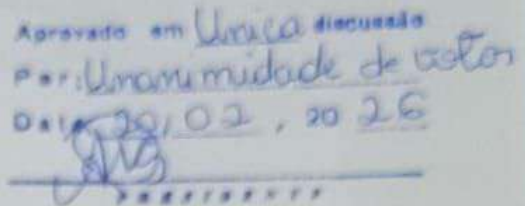 Aprovado em Unica discussão
Por: Unanimidade de votos
Data 20, 02, 20 26
Presidente